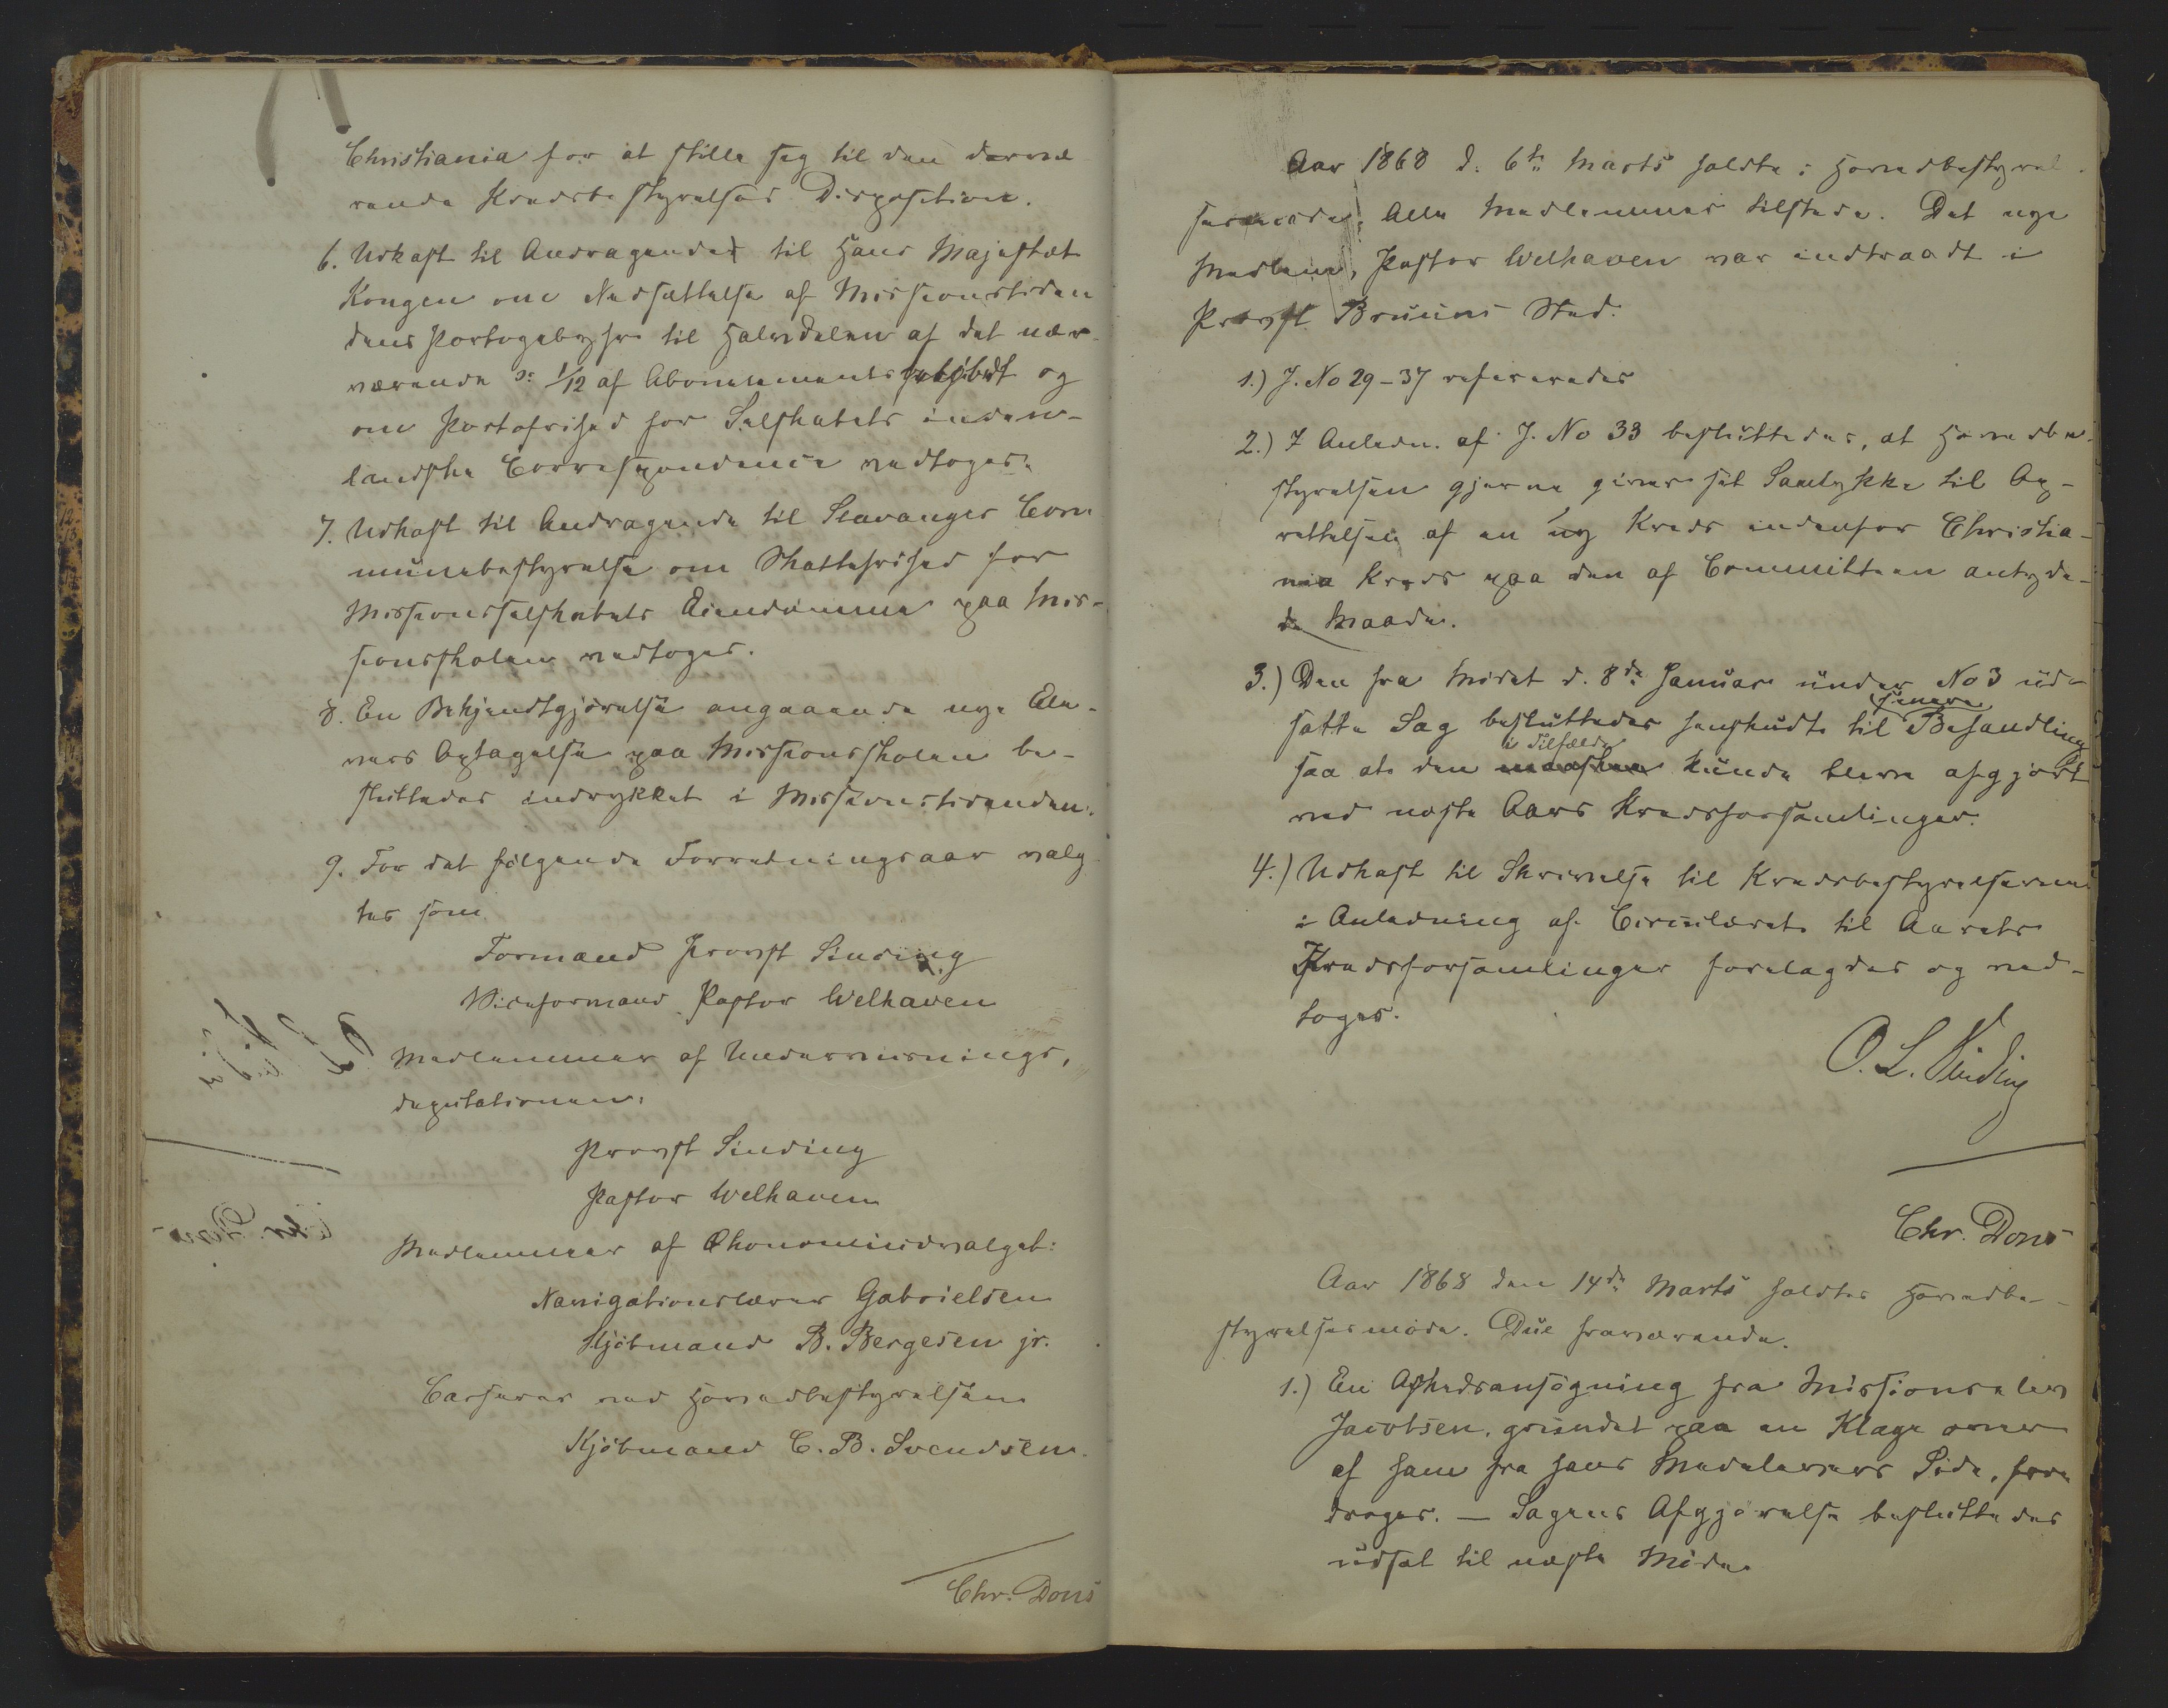 Christiania for at stille sig til den dervæ
rende Kredsbestyrelses Disposition.
6. Udkast til Andragende til Hans Majestæt
Kongen om Nedsættelse af Missionstiden
dens Portogebyhr til Halvdelen af det nær-
værende ɔ: 1/12 af Abonnements og
om Portofrihed for Selskabets inden-
landske Correspondence vedtoges.
7. Udkast til Andragende til Stavanger Com
munebestyrelse om Skattefrihed for
Missionsselskabets Eiendomme paa Mis-
sionsskolen vedtoges.
8. En Bekjendtgjørelse angaaende nye Ele-
vers Optagelse paa Missionsskolen be-
sluttedes indrykket i Missionstidenden.
9. For det følgende Forretningsaar valg
tes som
Formand Provst Sinding
Viceformand Pastor Welhaven
Medlemmer af Underviisnings,
deputationen:
Provst Sinding
Pastor Welhaven
Medlemmer af Økonomiudvalget:
Navigationslærer Gabrielsen
Kjøbmand B. Bergesen jr.
Casserer ved Hovedbestyrelsen
Kjøbmand C. B. Svendsen.
Chr. Dons
Aar 1868 d. 6te Marts holdtes Hovedbestyrel
sesmøde. Alle Medlemmer tilstede. Det nye
Medlem, Pastor Welhaven var indtraadt i
Provst Bruuns Sted.
1.) J. No 29-37 refereredes
2.) I Anledn. af J. No 33 besluttedes, at Hovedbe-
styrelsen gjerne giver sit Samtykke til Op-
rettelsen af en ny Kreds indenfor Christia-
nia Kreds paa den af Committeen antyde-
de Maade.
3.) Den fra Mødet d. 8de Januar under No 3 ud-
satte Sag besluttedes henskudt til senere Behandling
saa at den i Tilfælde kunde blive afgjort
ved næste Aars Kredsforsamlinger.
4.) Udkast til Skrivelse til Kredsbestyrelserne
i Anledning af Circulæret til Aarets
Kredsforsamlinger forelagdes og ved-
toges.
O. L. Sinding
Chr. Dons
Aar 1868 den 14de Marts holdtes Hovedbe-
styrelsesmøde. Due fraværende.
1.) En Afskedsansøgning fra Missionselev
Jacobsen, grundet paa en Klage over
af ham fra hans Medelevers Side, fore
droges. — Sagens Afgjørelse besluttedes
udsat til næste Møde.